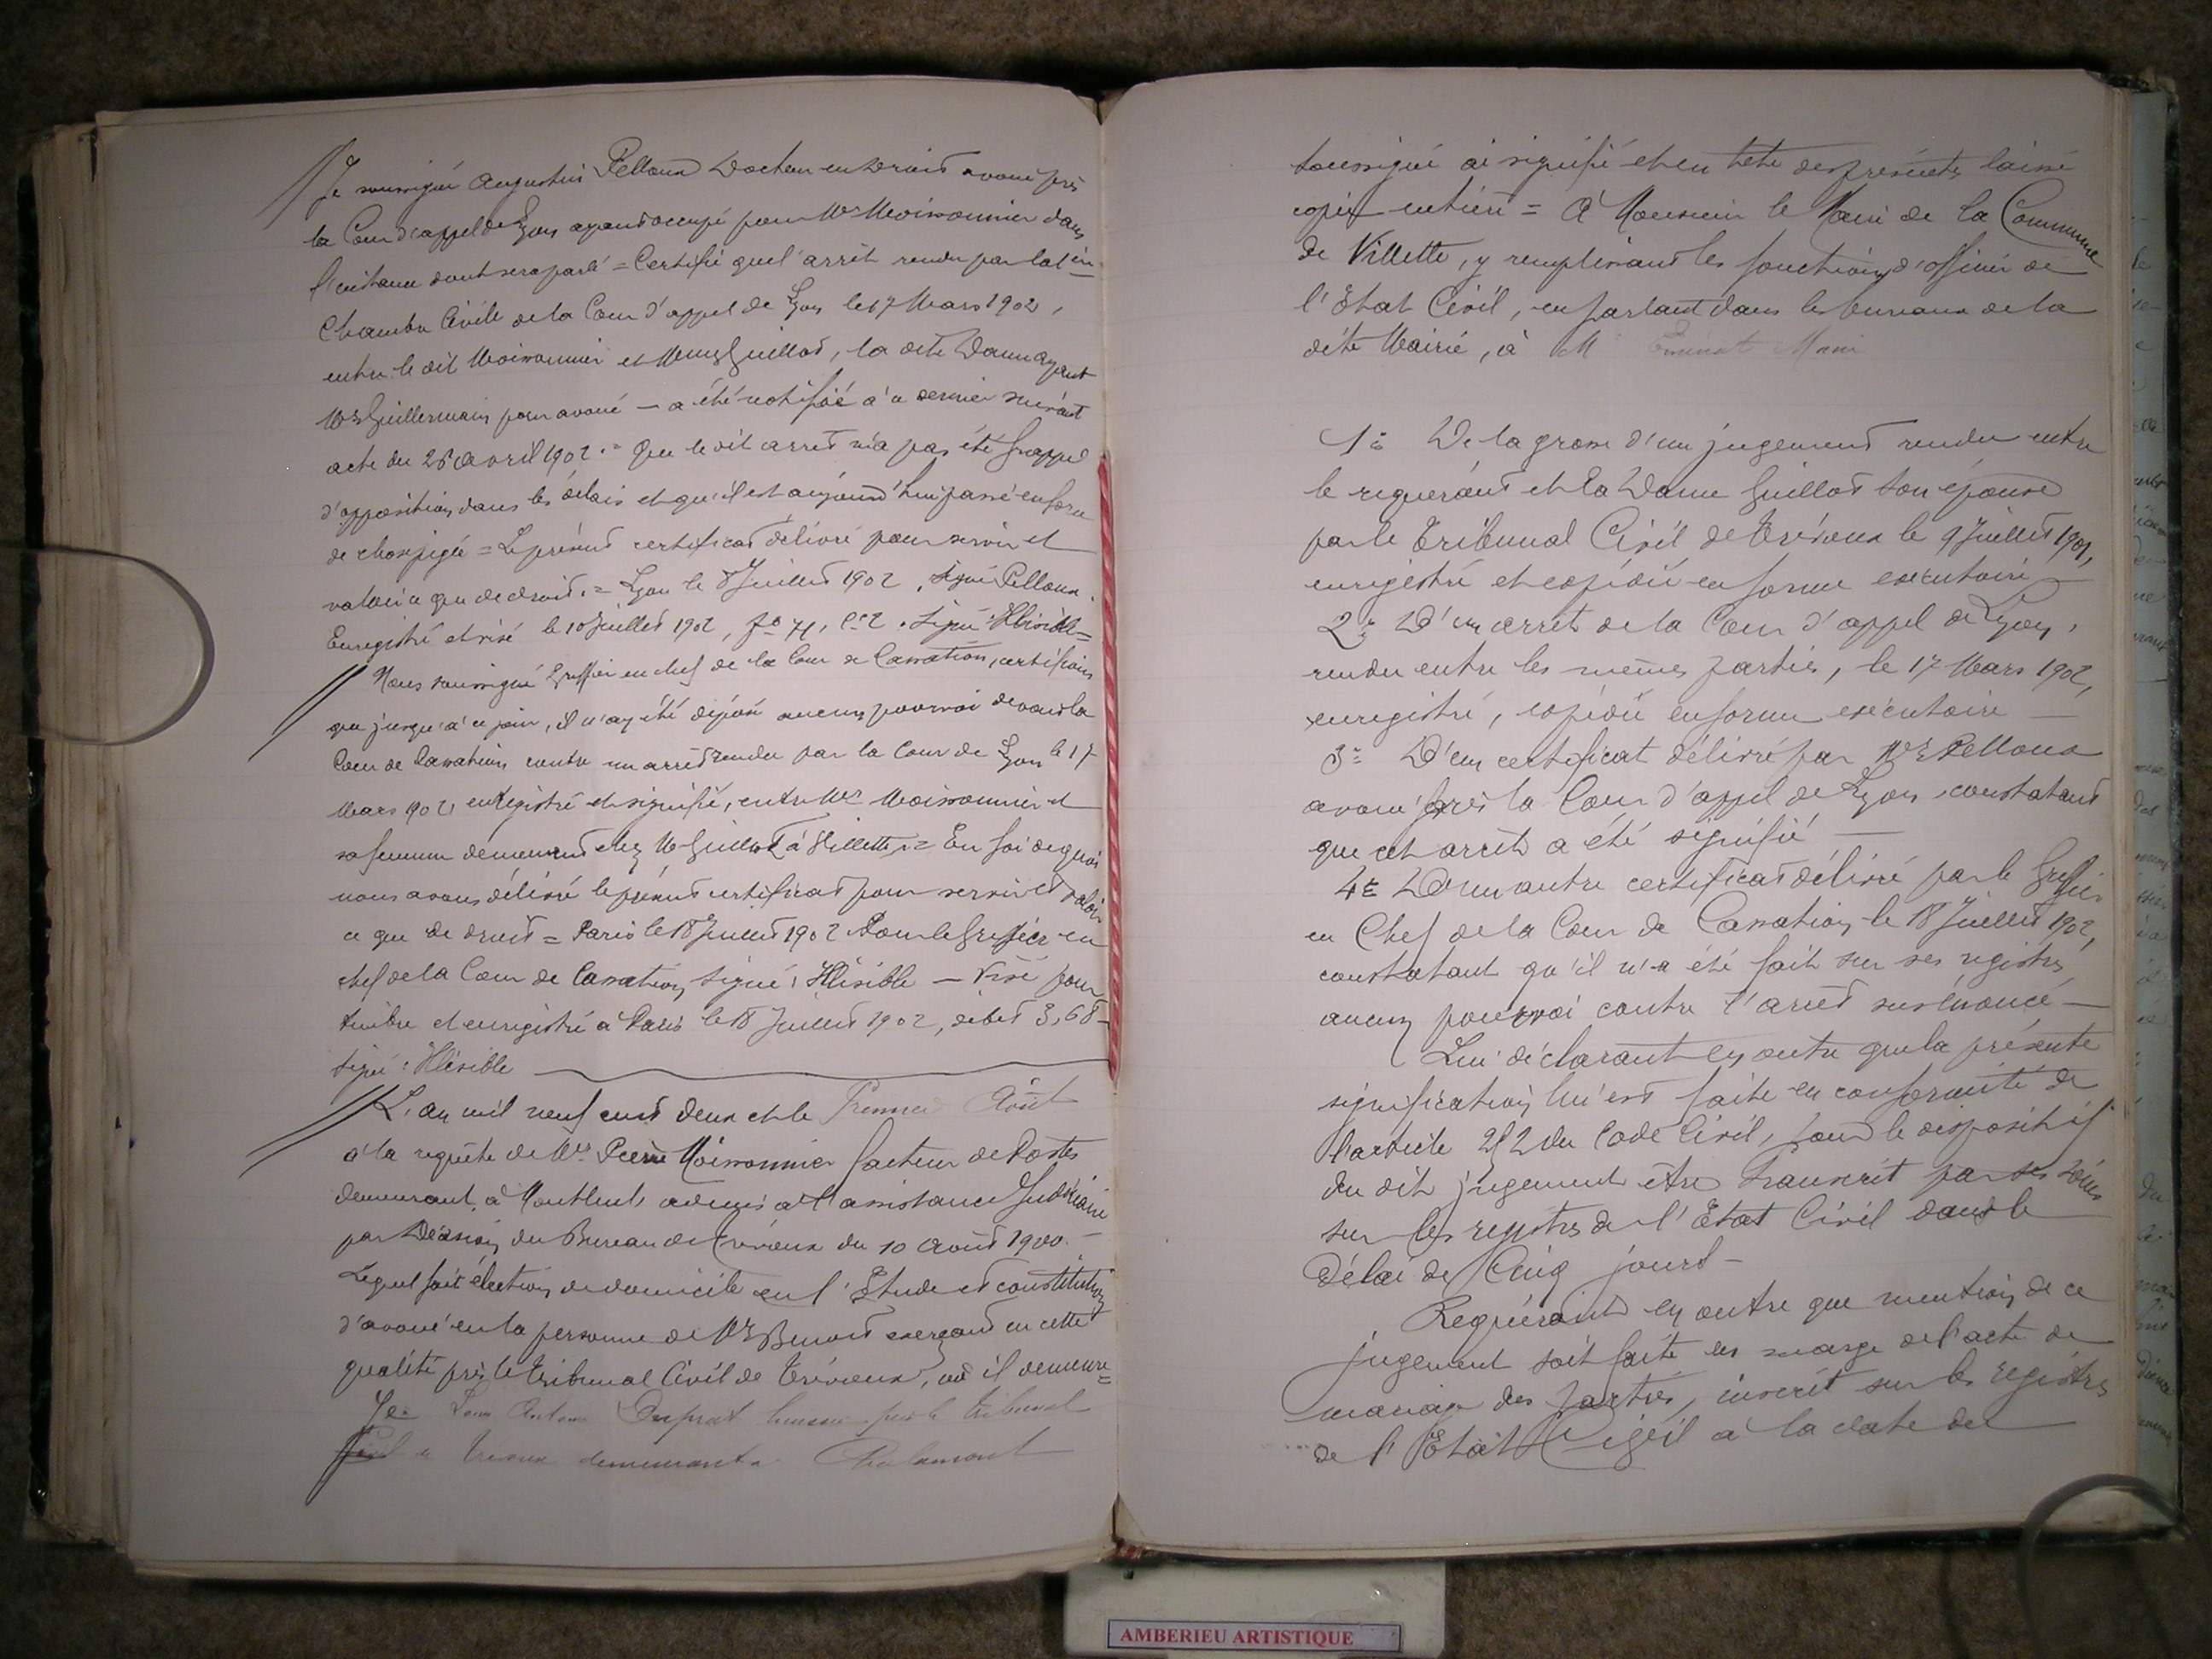 Je soussigné Augustin Pelloux Docteur en Droit avoué près
la Cour d'appel de Lyon ayant occupé pour Mr Moissonnier dans
l'instance dont sera parlé = Certifie que l'arrêt rendu par la 1ère
Chambre Civile de la Cour d'appel de Lyon le 17 Mars 1902,
entre le dit Moissonnier et Mme Guillot, la dite Dame ayant
Me Guillermain pour avoué — a été notifié à ce dernier suivant
acte du 26 Avril 1902. = Que le dit arrêt n'a pas été frappé
d'opposition dans les délais et qu'il est aujourd'hui passé en force
de chose jugée = Le présent certificat délivré pour servir et
valoir ce que de droit. = Lyon le 8 Juillet 1902. Signé Pelloux.
Enregistré et visé le 10 Juillet 1902, fo 71, Ce 2. Signé Illisible =
Nous soussigné Greffier en chef de la Cour de Cassation, certifions
que jusqu'à ce jour, il n'a été déposé aucun pourvoi devant la
Cour de Cassation contre un arrêt rendu par la Cour de Lyon le 17
Mars 1902, enregistré et signifié, entre Mr Moissonnier et
sa femme demeurant chez M Guillot à Villette. = En foi de quoi
nous avons délivré le présent certificat pour servir et valoir
ce que de droit = Paris le 18 Juillet 1902 Pour le Greffier en
chef de la Cour de Cassation, signé : Illisible — Visé pour
timbre et enregistré à Paris le 18 Juillet 1902, débet 3,68 -
signé : Illisible
L'an mil neuf cent deux et le Premier Août
à la requête de Mr Pierre Moissonnier facteur de Postes
demeurant à Montluel, admis à l'assistance Judiciaire
par Décision du Bureau de Trévoux du 10 Août 1900. —
Lequel fait élection de domicile en l'Etude et constitution
d'avoué en la personne de Me Benoit exerçant en cette
qualité près le tribunal Civil de Trévoux, où il demeure =
Je Louis Antoine huissier près le tribunal
Civil de Trévoux demeurant à Chalamont
soussigné ai signifié et en tête des présentes laissé
copie entière = A Monsieur le Maire de la Commune
de Villette, y remplissant les fonctions d'officier de
l'Etat Civil, en parlant dans les bureaux de la
dite Mairie, à M Maire
1° De la grosse d'un jugement rendu entre
le requérant et la Dame Guillot son épouse
par le Tribunal Civil de Trévoux le 9 Juillet 1901,
enregistré et expédié en forme exécutoire
2° D'un arrêt de la Cour d'appel de Lyon,
rendu entre les mêmes parties, le 17 Mars 1902,
enregistré, expédié en forme exécutoire —
3° D'un certificat délivré par Me Pelloux
avoué près la Cour d'appel de Lyon, constatant
que cet arrêt a été signifié —
4° D'un autre certificat délivré par le Greffier
en Chef de la Cour de Cassation, le 18 Juillet 1902,
constatant qu'il n'a été fait sur ses registres
aucun pourvoi contre l'arrêt susénoncé —
Lui déclarant en outre que la présente
signification lui est faite en conformité de
l'article 252 du Code Civil, pour le dispositif
du dit jugement être Transcrit par ses soins
sur les registres de l'Etat Civil dans le
délai de Cinq jours —
Requérant en outre que mention de ce
jugement soit faite en marge de l'acte de
mariage des parties, inscrit sur les registres
de l'Etat Civil à la date du
AMBERIEU ARTISTIQUE